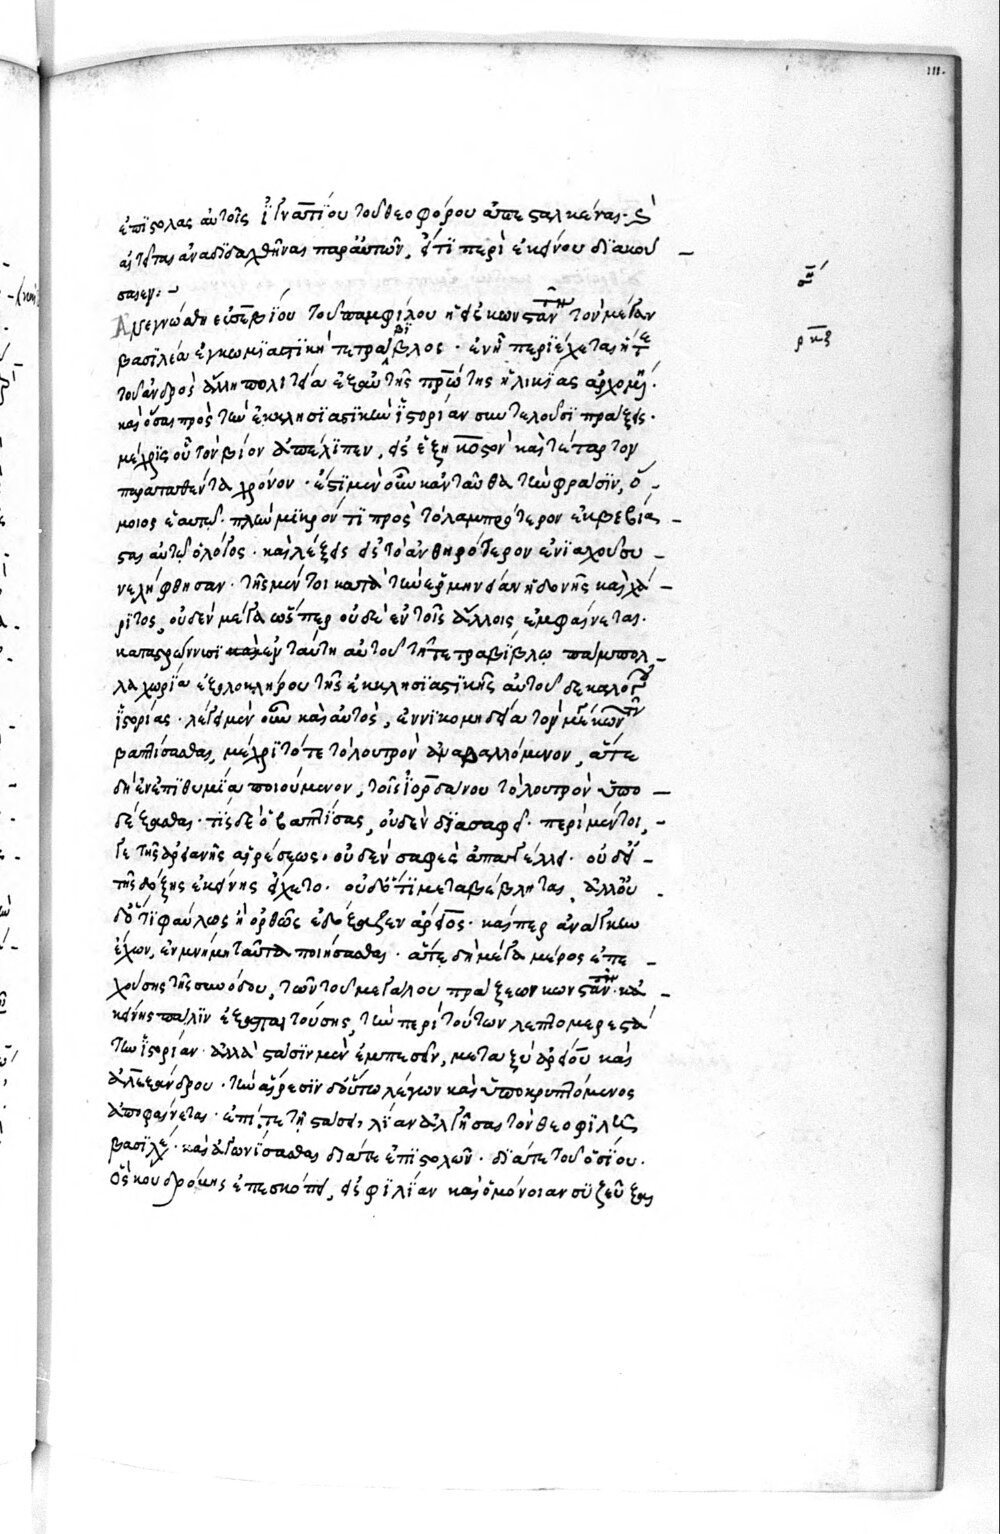 111.
ἐπιστολὰς αὐτοῖς ἰγνατίου τοῦ θεοφόρου ἀπεσταλκέναι·
αἰτεῖται ἀναδιδαχθῆναι παρ' αὐτῶν, εἴ τι περὶ ἐκείνου διακού
σαιεν·
Ἀνεγνώσθη εὐσεβίου τοῦ παμφίλου ἡ εἰς κωνσταντῖνον τὸν μέγαν
βασιλέα ἐγκωμιαστικὴ τετράβιβλος· ἐν ᾗ περιέχεται ἥ τε
τοῦ ἀνδρὸς ὅλη πολιτεία ἐξ αὐτῆς πρώτης ἡλικίας ἀρχομένη·
καὶ ὅσαι πρὸς τὴν ἐκκλησιαστικὴν ἱστορίαν συντελοῦσι πράξεις·
μέχρις οὗ τὸν βίον ἀπέλιπεν, εἰς ἑξηκοστὸν καὶ τέταρτον
παραταθέντα χρόνον· ἔστι μὲν οὖν κἀνταῦθα τὴν φράσιν, ὅ
μοιος ἑαυτῷ· πλὴν μικρόν τι πρὸς τὸ λαμπρότερον ἐκβεβία
σται αὐτῷ ὁ λόγος· καὶ λέξεις εἰς τὸ ἀνθηρότερον ἐνιαχοῦ συ
νελήφθησαν· τῆς μέντοι κατὰ τὴν ἑρμηνείαν ἡδονῆς καὶ χά
ριτος, οὐδὲν μέγα ὥσπερ οὐδὲ ἐν τοῖς ἄλλοις ἐμφαίνεται·
καταστρώννυσι ἐν ταύτῃ αὐτοῦ τῇ τετραβίβλῳ πάμπολ
λα χωρία ἐξ ὁλοκλήρου τῆς ἐκκλησιαστικῆς αὐτοῦ δεκαλόγου
ἱστορίας· λέγει μὲν οὖν καὶ αὐτὸς, ἐν νικομηδείᾳ τὸν μέγαν κωνσταντῖνον
βαπτίσασθαι, μέχρι τότε τὸ λουτρὸν ἀναβαλλόμενον, ἅτε
δὴ ἐν ἐπιθυμίᾳ ποιούμενον, τοῖς ἰορδάνου τὸ λουτρὸν ὑπο
δέξασθαι· τίς δὲ ὁ βαπτίσας, οὐδὲν διασαφεῖ· περὶ μέντοι
γε τῆς ἀρειανῆς αἱρέσεως, οὐδὲν σαφὲς ἀπαγγέλλει· οὐδ' εἰ
τῆς δόξης ἐκείνης εἴχετο· οὐδ' ὅτι μεταβέβληται, ἀλλ' οὐ
δ' ὅτι φαύλως ἢ ὀρθῶς ἐδόξαζεν ἄρειος· καίπερ ἀνάγκην
ἔχων, ἐν μνήμῃ ταῦτα ποιήσασθαι· ἅτε δὴ μέγα μέρος ἐπε
χούσης τῆς συνόδου, τῶν τοῦ μεγάλου πράξεων κωνσταντίνου· κἀ
κείνης πάλιν ἐξαπαιτούσης, τὴν περὶ τούτων λεπτομερεστά
την ἱστορίαν· ἀλλὰ στάσιν μὲν ἐμπεσεῖν, μεταξὺ ἀρείου καὶ
ἀλεξάνδρου· τὴν αἵρεσιν δ' οὕτω λέγων καὶ ὑποκρυπτόμενος
ἀποφαίνεται· ἐπί τε τῇ στάσει, λίαν ἀλγῆσαι τὸν θεοφιλῆ
βασιλέα· καὶ ἀγωνίσασθαι διά τε ἐπιστολῶν· διά τε τοῦ ὁσίου·
ὃς κουδρούβης ἐπεσκόπει, εἰς φιλίαν καὶ ὁμόνοιαν συζεῦξαι
ρκζ